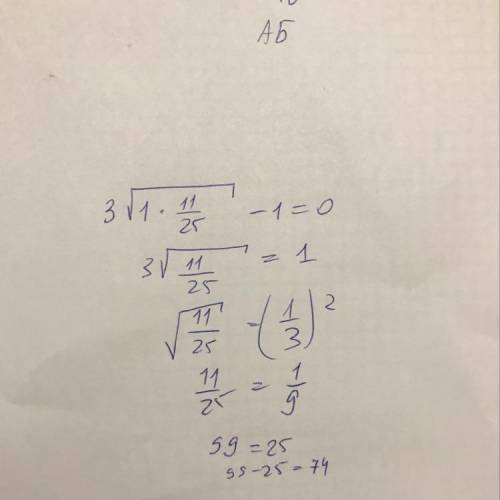 АБ
3√(1 · 11/25) - 1 = 0
3√(11/25) = 1
√(11/25) = (1/3)²
11/25 = 1/9
99 = 25
99 - 25 = 74